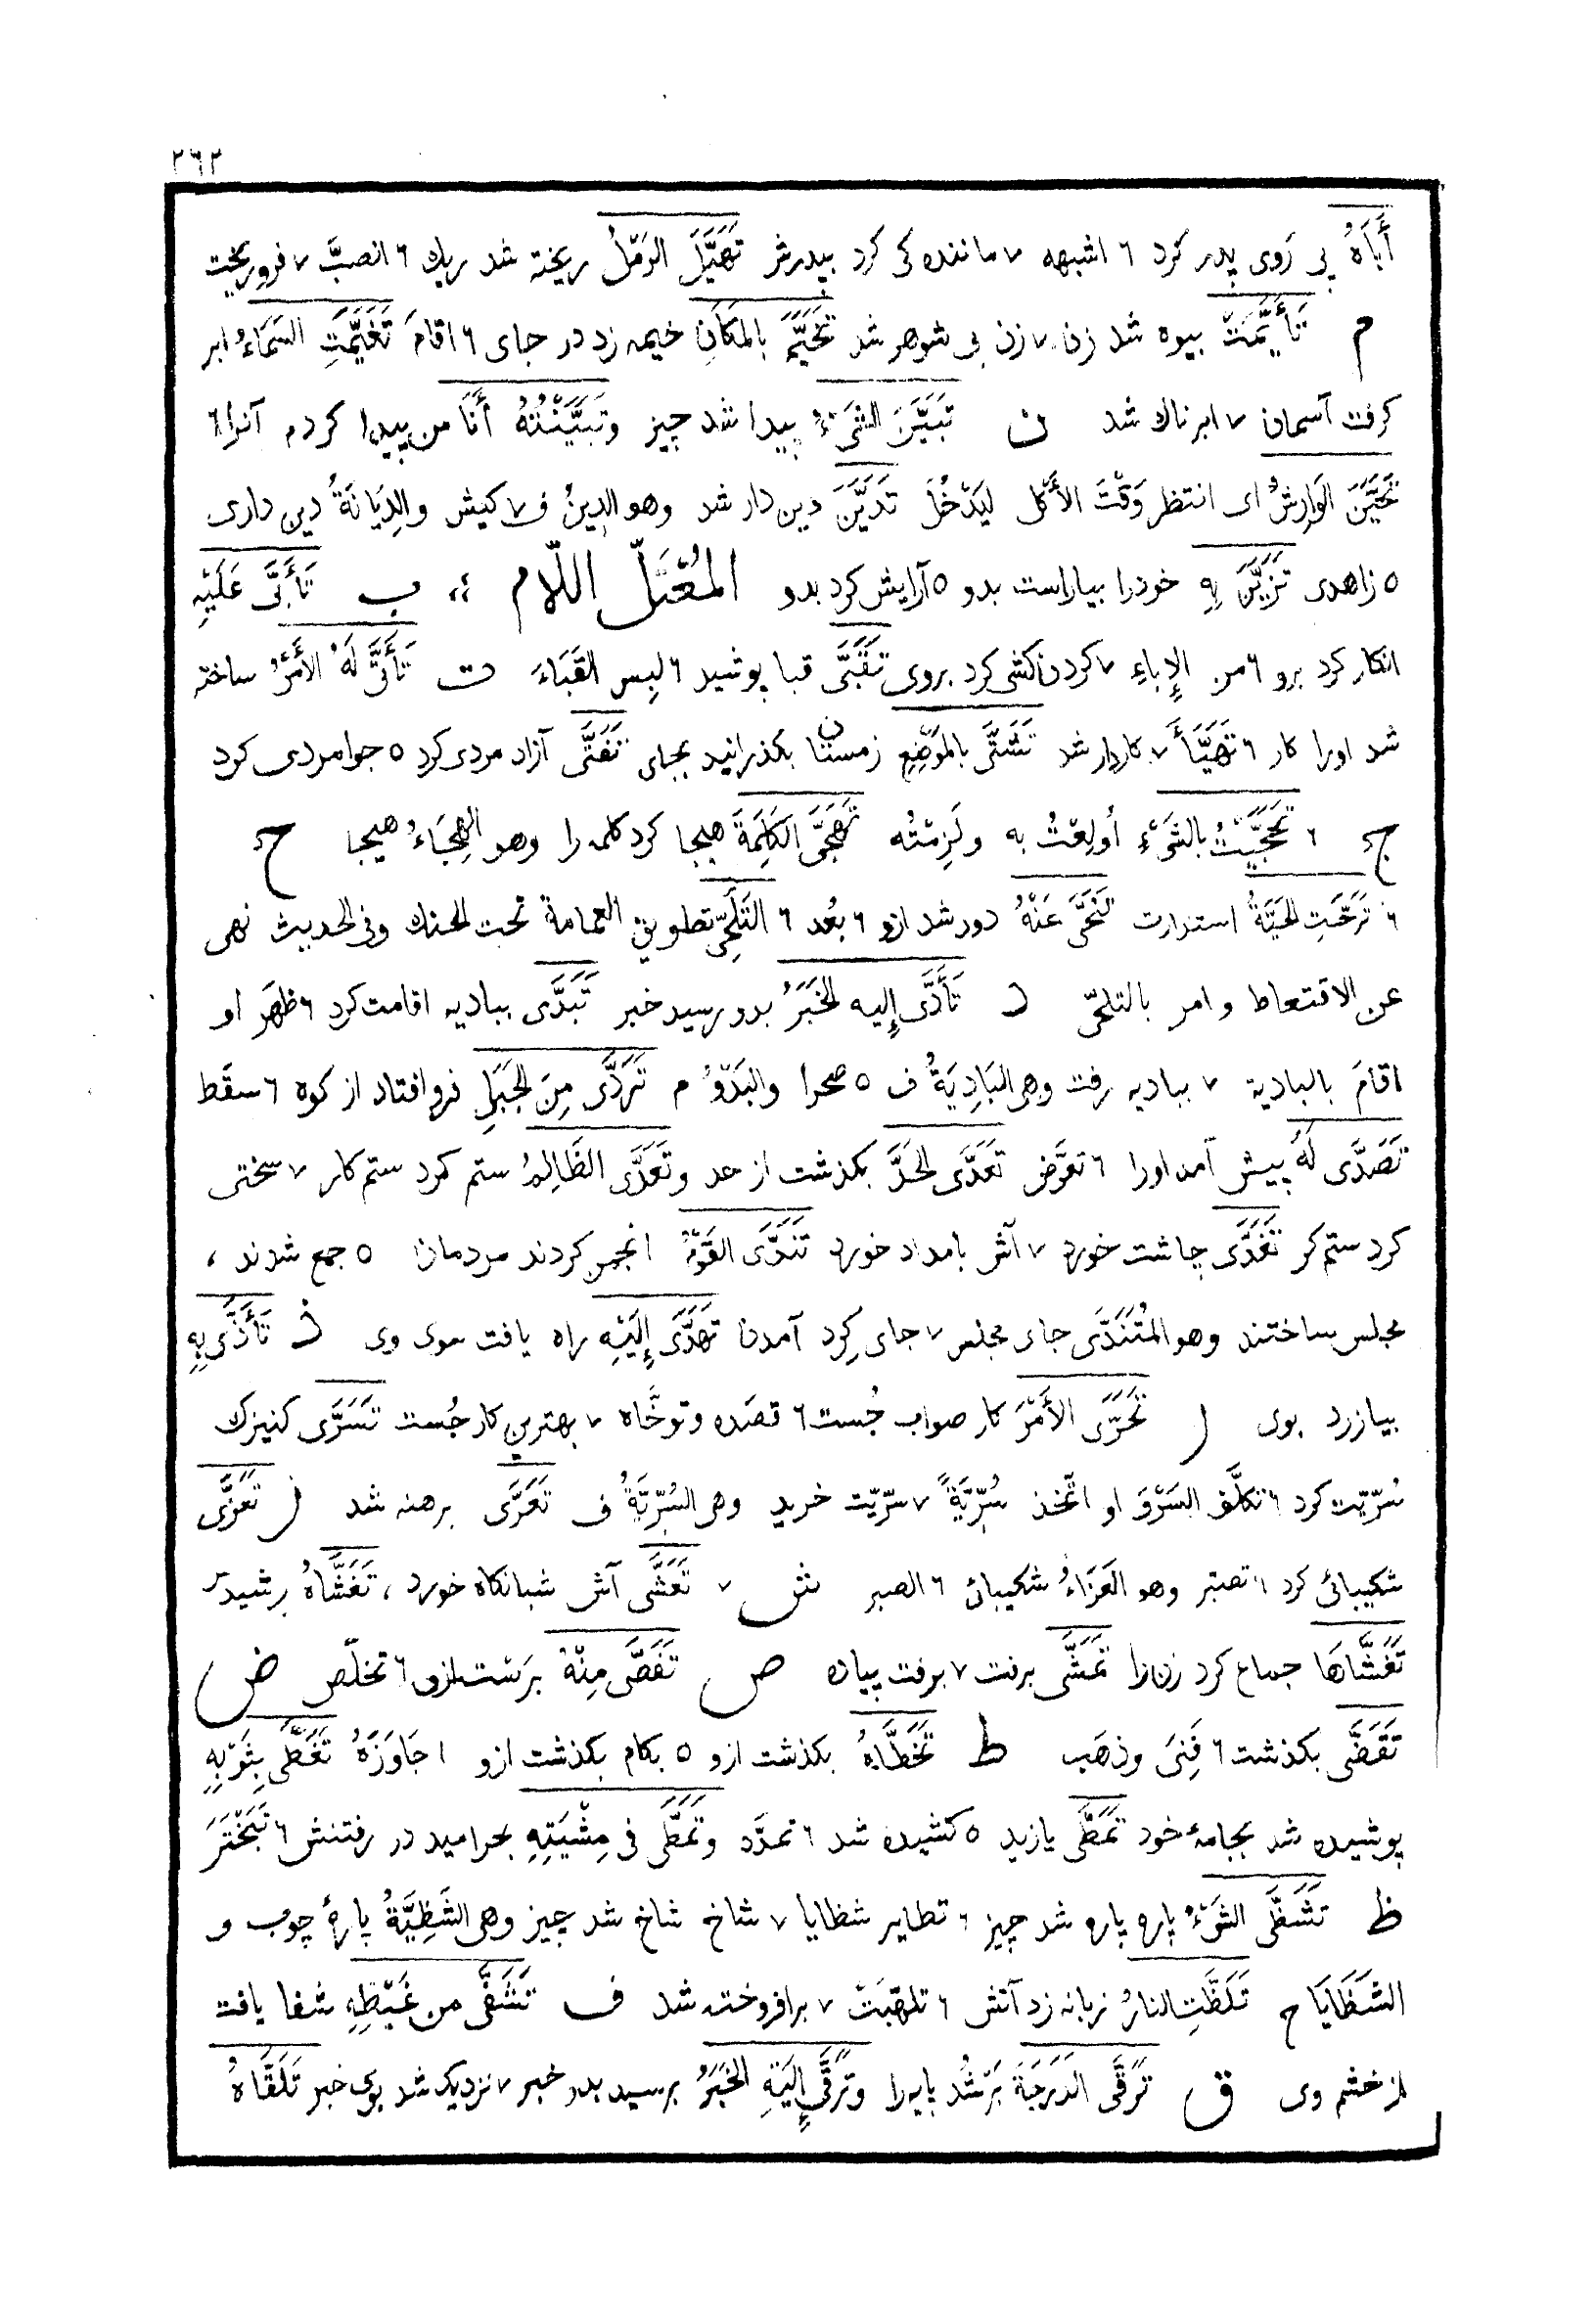 ٢٦٢
أَبَاهُ پی رَوی پدر کرد ٦ اشبهه ٧ مانندە کی کرد بپدرش تَهَيَّلَ الرَمْلُ ریخته شد ریك ٦ انصبَّ ٧ فرو ریخت
م تَأَيَّمَتْ بیوه شد زن ٧ زن بی شوهر شد تَخَيَّمَ بالمَكَانِ خیمه زد در جای ٦ اقامَ تَغَيَّمَتِ السَمَاءُ ابر
کرفت آسمان ٧ ابرناك شد ن تَبَيَّنَ الشَیْءُ پیدا شد چیز وتَبَيَّنْتُهُ أَنَا من پیدا کردم آنرا ٦
تَحَيَّنَ الوَارِشُ ای انتظر وَقْتَ الأَكْل لِيَدْخُلَ تَدَيَّنَ دین دار شد وهو الدِينُ ف ٧ کیش والدِيَانَةُ دین داری
٥ زاهدی تَزَيَّنَ بِهِ خودرا بیاراست بدو ٥ آرایش کرد بدو المُعْتَلّ اللّام ، ب تَأَبَّى عَلَيْهِ
انکار کرد برو ٦ من الإِباءِ ٧ کردن کشی کرد بروی تَقَبَّى قبا پوشید ٦ لبِس القَبَاءَ ت تَأَتَّى لَهُ الأَمْرُ ساخته
شد اورا کار ٦ تَهَيَّأَ ٧ کاردار شد تَشَتَّى بالمَوْضِعِ زمستان بکذرانید بجای تَفَتَّى آزاد مردی کرد ٥ جوامردی کرد
ج ٦ تَحَجَّيْتُ بالشَیْءِ أُولِعْتُ به ولَزِمْتُه تَهَجَّى الكَلِمَةَ هیجا کرد کلمه را وهو الهِجَاءُ هیجا ح
٦ تَرَحَّتِ الحَيَّةُ استدارت تَنَحَّى عَنْهُ دور شد ازو ٦ بُعد ٦ التَلَحِّي تطویق العمامة تحت الحنك وفی الحدیث نهی
عن الاقتعاط وامر بالتلحّی د تَأَدَّى إِليه الخَبَرُ بدو رسید خبر تَبَدَّى ببادیه اقامت کرد ٦ ظهَر او
اقامَ بالبادیة ٧ ببادیه رفت وهی البَادِيَةُ ف ٥ صحرا والبَدْوُ م تَرَدَّى مِنَ الجَبَلِ فرو افتاد از کوه ٦ سقَط
تَصَدَّى لَهُ پیش آمد اورا ٦ تعرّض تَعَدَّى الحَدَّ بکذشت از حد وتَعَدَّى الظَالِمُ ستم کرد ستم کار ٧ سختی
کرد ستم کر تَغَدَّى چاشت خورد ٧ آش بامداد خورد تَنَدَّى القَوْمُ انجمن کردند مردمان ٥ جمع شدند ،
مجلس ساختند وهو المُتَنَدَّى جای مجلس ٧ جای کِرد آمدن تَهَدَّى إِلَيْهِ راه یافت سوی وی ذ تَأَذَّى بِهِ
بیازرد بوی ر تَحَرَّى الأَمْرَ کار صواب جُست ٦ قصَده وتوخّاه ٧ بهترین کار جُست تَسَرَّى کنیزك
سُرّیّت کرد ٦ تکلّف السَرْوَ او اتّخذ سُرِّيَّةً ٧ سرّیّت خرید وهی السُرِّيَّةُ ف تَعَرَّى برهنه شد ز تَعَزَّى
شکیبائی کرد ٦ تصبّر وهو العَزَاءُ شکیبائی ٦ الصبر ش ٧ تَعَشَّى آش شبانکاه خورد ، تَغَشَّاهُ پوشید
تَغَشَّاهَا جماع کرد زن را تَمَشَّى برفت ٧ برفت پیاده ص تَفَصَّى مِنْهُ برَست ازو ٦ تخلّص ض
تَقَضَّى بکذشت ٦ فَنِیَ وذهَب ط تَخَطَّاهُ بکذشت ازو ٥ بکام بکذشت ازو ٦ جَاوَزَهُ تَغَطَّى بِثَوْبِهِ
پوشیده شد بجامۀ خود تَمَطَّى یازید ٥ کشیده شد ٦ تمدَّد وتَمَطَّى فی مِشْيَتِهِ بخرامید در رفتنش ٦ تَبَخْتَرَ
ظ تَشَظَّى الشَیْءُ پاره پاره شد چیز ٦ تطایر شظایا ٧ شاخ شاخ شد چیز وهی الشَظِيَّةُ پارۀ چوب و
الشَظَايَا ح تَلَظَّتِ النارُ زبانه زد آتش ٦ تلهّبَتْ ٧ برافروخته شد ف تَشَفَّى من غَيْظِهِ شفا یافت
از خشم وی ق تَرَقَّى الدَرَجَةَ بَرْشُد پایه را وتَرَقَّى إِلَيْهِ الخَبَرُ برسید بدو خبر ٧ نزدیك شد بوی خبر تَلَقَّاهُ